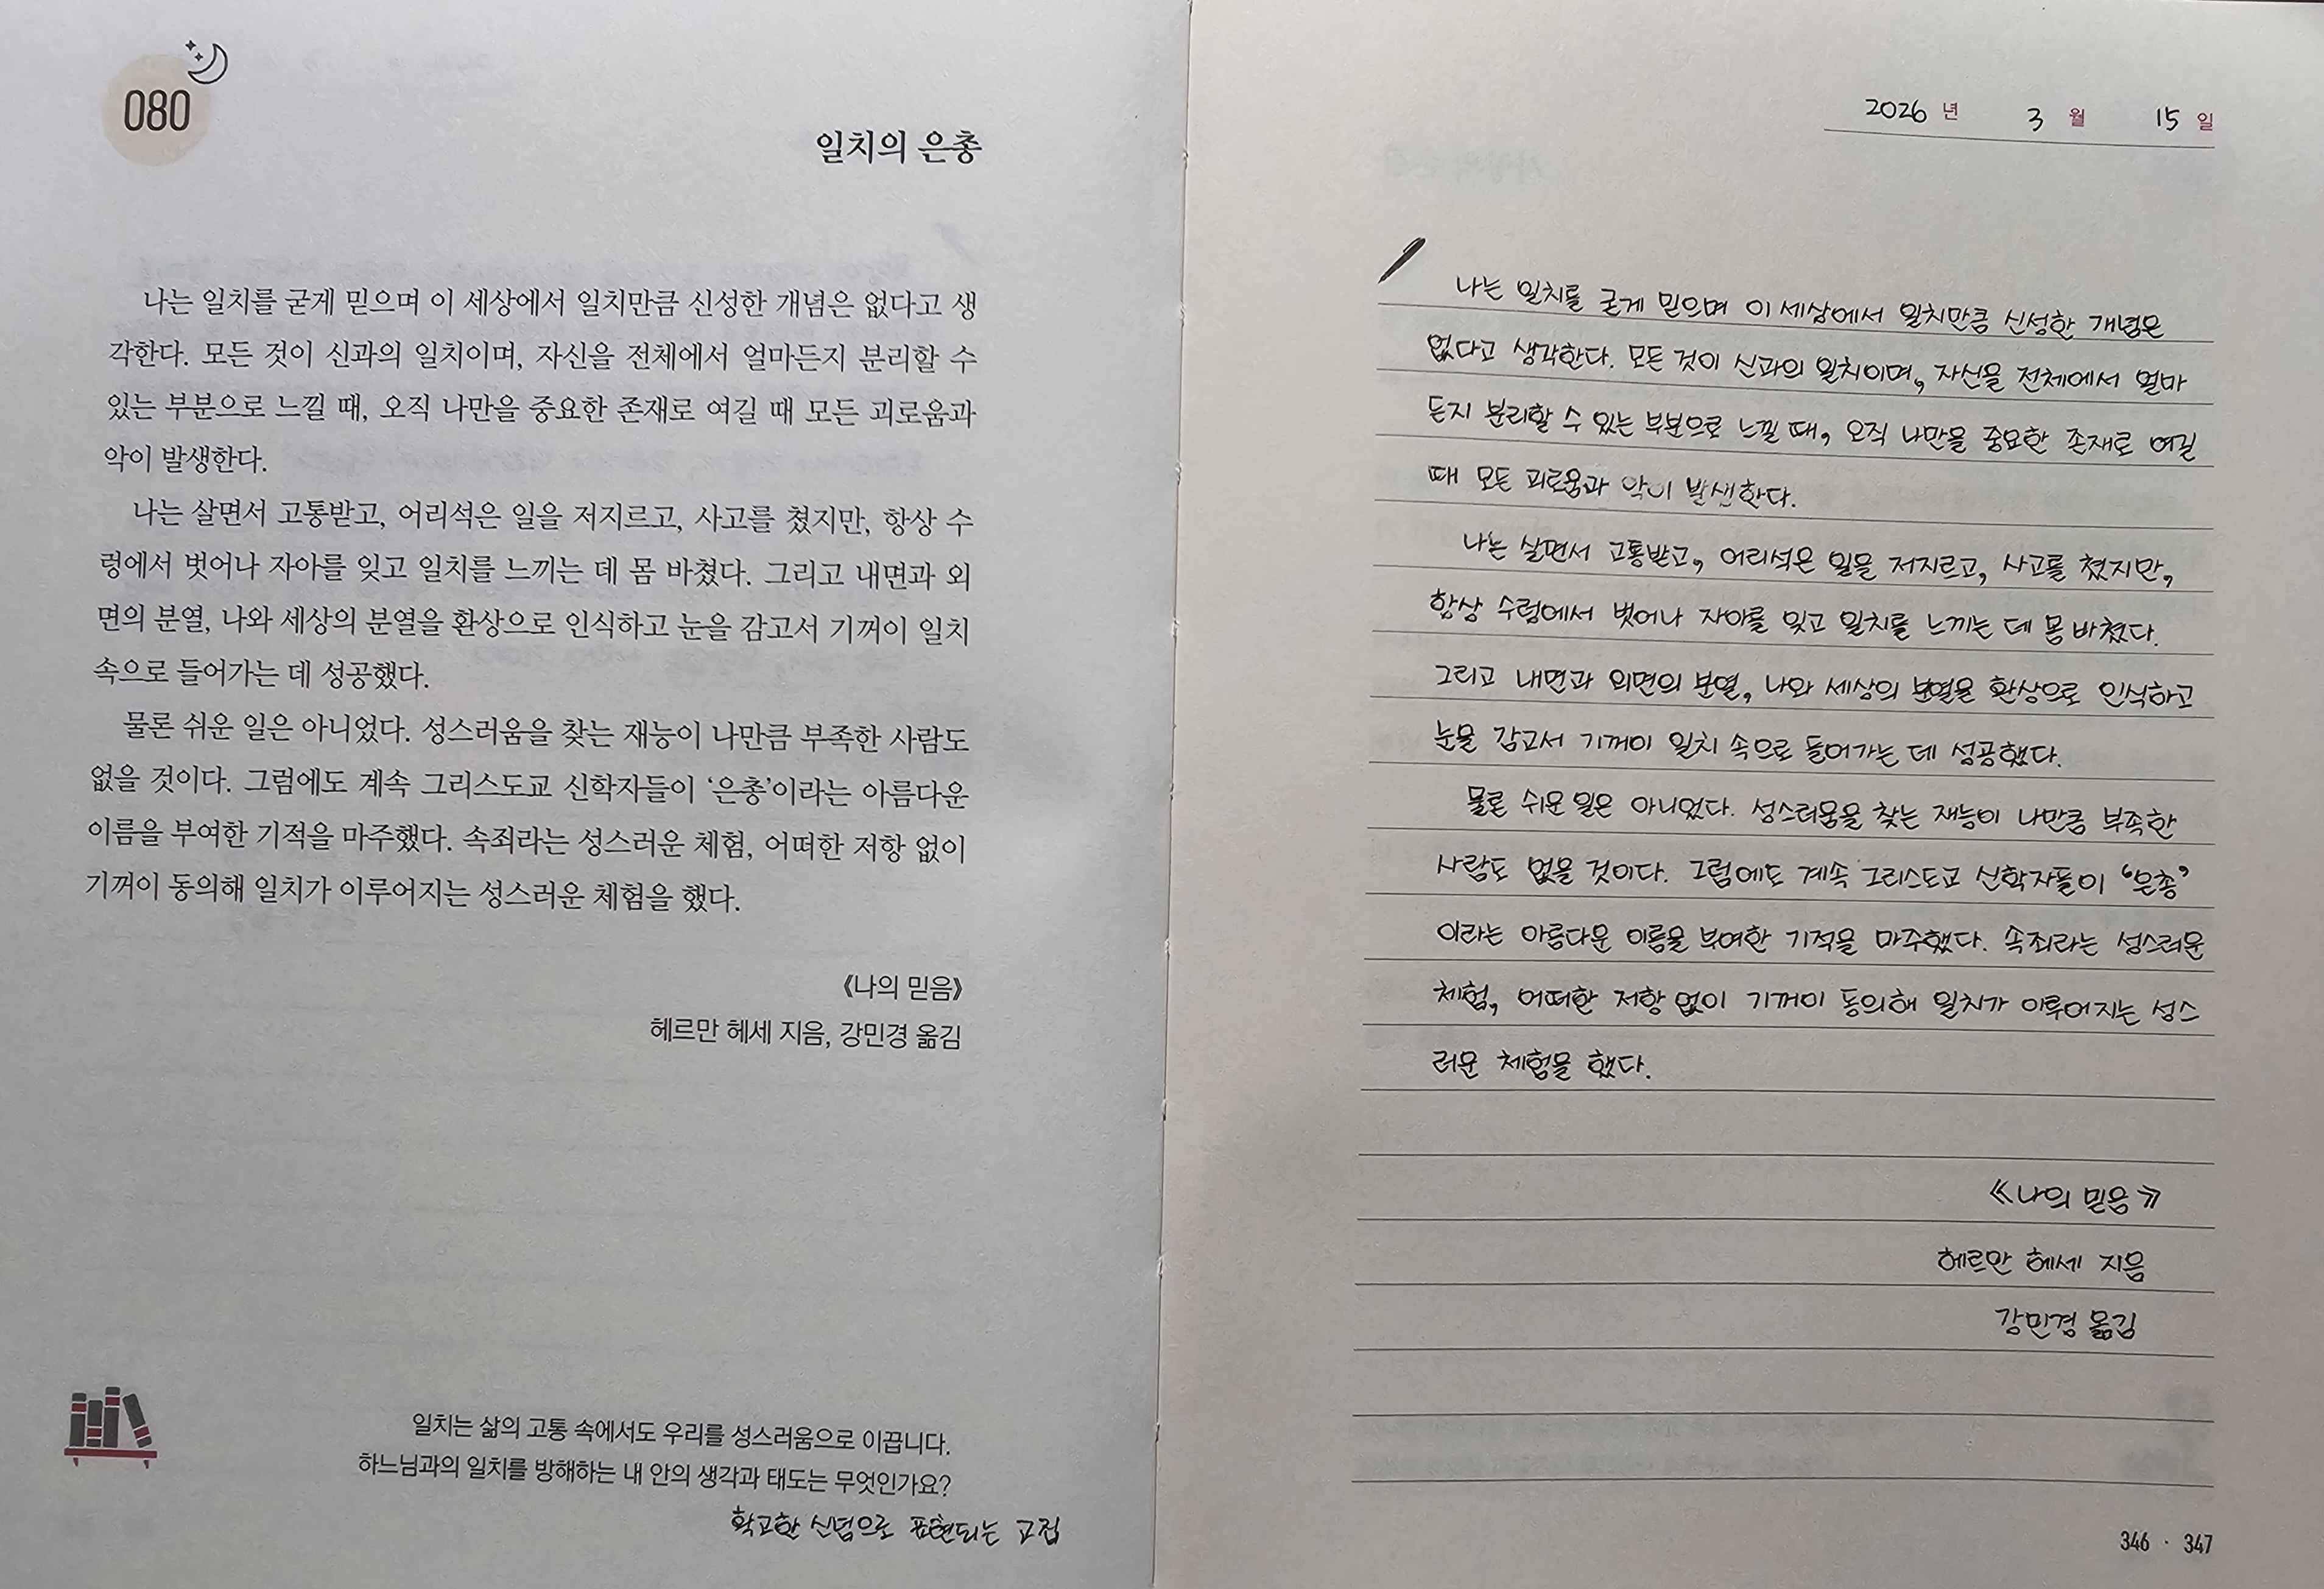 080
일치의 은총
나는 일치를 굳게 믿으며 이 세상에서 일치만큼 신성한 개념은 없다고 생
각한다. 모든 것이 신과의 일치이며, 자신을 전체에서 얼마든지 분리할 수
있는 부분으로 느낄 때, 오직 나만을 중요한 존재로 여길 때 모든 괴로움과
악이 발생한다.
나는 살면서 고통받고, 어리석은 일을 저지르고, 사고를 쳤지만, 항상 수
렁에서 벗어나 자아를 잊고 일치를 느끼는 데 몸 바쳤다. 그리고 내면과 외
면의 분열, 나와 세상의 분열을 환상으로 인식하고 눈을 감고서 기꺼이 일치
속으로 들어가는 데 성공했다.
물론 쉬운 일은 아니었다. 성스러움을 찾는 재능이 나만큼 부족한 사람도
없을 것이다. 그럼에도 계속 그리스도교 신학자들이 ‘은총’이라는 아름다운
이름을 부여한 기적을 마주했다. 속죄라는 성스러운 체험, 어떠한 저항 없이
기꺼이 동의해 일치가 이루어지는 성스러운 체험을 했다.
《나의 믿음》
헤르만 헤세 지음, 강민경 옮김
일치는 삶의 고통 속에서도 우리를 성스러움으로 이끕니다.
하느님과의 일치를 방해하는 내 안의 생각과 태도는 무엇인가요?
확고한 신념으로 표현되는 고집
2026 년 3 월 15 일
나는 일치를 굳게 믿으며 이 세상에서 일치만큼 신성한 개념은
없다고 생각한다. 모든 것이 신과의 일치이며, 자신을 전체에서 얼마
든지 분리할 수 있는 부분으로 느낄 때, 오직 나만을 중요한 존재로 여길
때 모든 괴로움과 악이 발생한다.
나는 살면서 고통받고, 어리석은 일을 저지르고, 사고를 쳤지만,
항상 수렁에서 벗어나 자아를 잊고 일치를 느끼는 데 몸 바쳤다.
그리고 내면과 외면의 분열, 나와 세상의 분열을 환상으로 인식하고
눈을 감고서 기꺼이 일치 속으로 들어가는 데 성공했다.
물론 쉬운 일은 아니었다. 성스러움을 찾는 재능이 나만큼 부족한
사람도 없을 것이다. 그럼에도 계속 그리스도교 신학자들이 “은총”
이라는 아름다운 이름을 부여한 기적을 마주했다. 속죄라는 성스러운
체험, 어떠한 저항 없이 기꺼이 동의해 일치가 이루어지는 성스
러운 체험을 했다.
《나의 믿음》
헤르만 헤세 지음
강민경 옮김
346 · 347